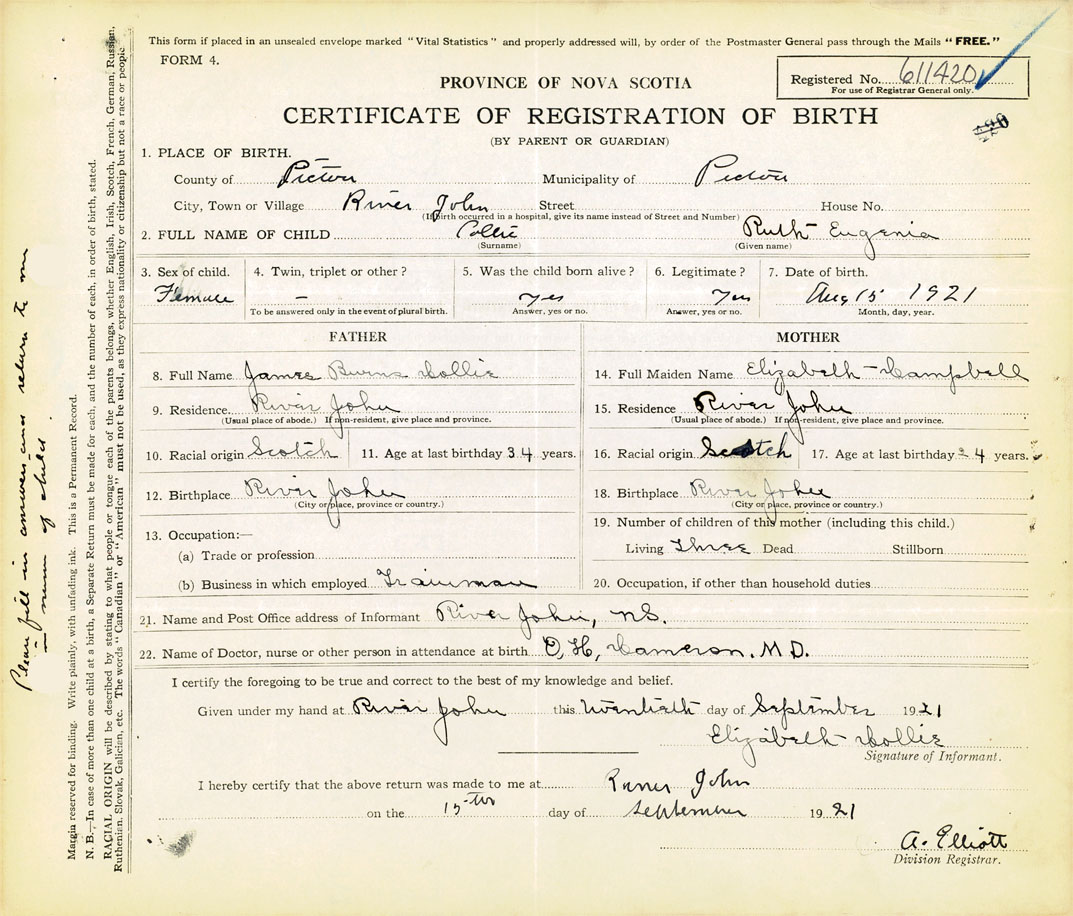 This form if placed in an unsealed envelope marked "Vital Statistics" and properly addressed will, by order of the Postmaster General pass through the Mails "FREE."
FORM 4.
Registered No. 611420
For use of Registrar General only.
PROVINCE OF NOVA SCOTIA
CERTIFICATE OF REGISTRATION OF BIRTH
(BY PARENT OR GUARDIAN)
1. PLACE OF BIRTH.
County of Pictou Municipality of Pictou
City, Town or Village River John Street House No.
(If birth occurred in a hospital, give its name instead of Street and Number)
2. FULL NAME OF CHILD Collie Ruth Eugenia
(Surname) (Given name)
3. Sex of child. 4. Twin, triplet or other? 5. Was the child born alive? 6. Legitimate? 7. Date of birth.
Female – yes Yes Aug 15 1921
To be answered only in the event of plural birth. Answer, yes or no. Answer, yes or no. Month, day, year.
FATHER
8. Full Name James Burns Collie
9. Residence River John
(Usual place of abode.) If non-resident, give place and province.
10. Racial origin Scotch 11. Age at last birthday 34 years.
12. Birthplace River John
(City or place, province or country.)
13. Occupation:—
(a) Trade or profession
(b) Business in which employed Trainman
MOTHER
14. Full Maiden Name Elizabeth Campbell
15. Residence River John
(Usual place of abode.) If non-resident, give place and province.
16. Racial origin Scotch 17. Age at last birthday 34 years.
18. Birthplace River John
(City or place, province or country.)
19. Number of children of this mother (including this child.)
Living Three Dead Stillborn
20. Occupation, if other than household duties
21. Name and Post Office address of Informant River John, N.S.
22. Name of Doctor, nurse or other person in attendance at birth O, H, Cameron. M.D.
I certify the foregoing to be true and correct to the best of my knowledge and belief.
Given under my hand at River John this twentieth day of September 1921
Elizabeth Collie
Signature of Informant.
I hereby certify that the above return was made to me at River John
on the day of September 1921
A. Elliott
Division Registrar.
Please fill in answer and return to me
return of child
Margin reserved for binding. Write plainly, with unfading ink. This is a Permanent Record.
N. B.—In case of more than one child at a birth, a Separate Return must be made for each, and the number of each, in order of birth, stated.
RACIAL ORIGIN will be described by stating to what people or tongue each of the parents belongs, whether English, Irish, Scotch, French, German, Russian,
Ruthenian, Slovak, Galician, etc. The words "Canadian" or "American" must not be used, as they express nationality or citizenship but not a race or people